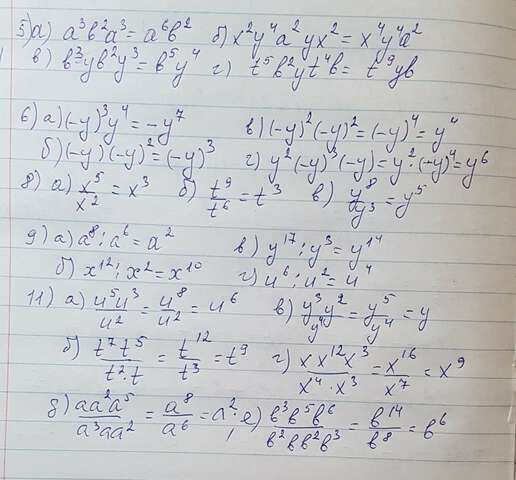 5) а) a³b²a³ = a⁶b² б) x²y⁴a²yx² = x⁴y⁴a²
в) b³yb²y³ = b⁵y⁴ г) t⁵b²yt⁴b = t⁹yb
6) а) (-y)³y⁴ = -y⁷ в) (-y)²(-y)² = (-y)⁴ = y⁴
б) (-y)(-y)² = (-y)³ г) y²(-y)³(-y) = y²·(-y)⁴ = y⁶
8) а) x⁵/x² = x³ б) t⁹/t⁶ = t³ в) y⁸/y³ = y⁵
9) а) a⁸:a⁶ = a² в) y¹⁷:y³ = y¹⁴
б) x¹²:x² = x¹⁰ г) u⁶:u² = u⁴
11) а) u⁵u³/u² = u⁸/u² = u⁶ в) y³y²/y⁴ = y⁵/y⁴ = y
б) t⁷t⁵/t²·t = t¹²/t³ = t⁹ г) x·x¹²x³/x⁴·x³ = x¹⁶/x⁷ = x⁹
д) aa²a⁵/a³aa² = a⁸/a⁶ = a²; е) b³b⁵b⁶/b²bb²b³ = b¹⁴/b⁸ = b⁶